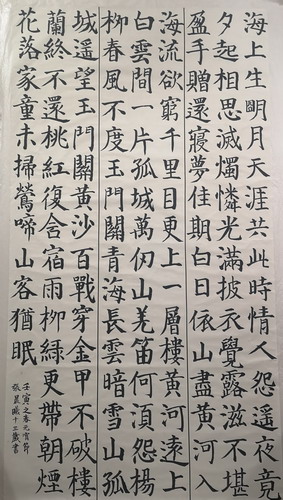 海上生明月天涯共此時情人怨遥夜竟
夕起相思滅燭憐光滿披衣覺露滋不堪
盈手贈還寢夢佳期白日依山盡黄河入
海流欲窮千里目更上一層樓黄河遠上
白雲間一片孤城萬仞山羌笛何須怨楊
柳春風不度玉門關青海長雲暗雪山孤
城遥望玉門關黄沙百戰穿金甲不破樓
蘭終不還桃紅復含宿雨柳緑更帶朝煙
花落家童未掃鶯啼山客猶眠
壬寅之春元宵節
張晨曦十二歲書